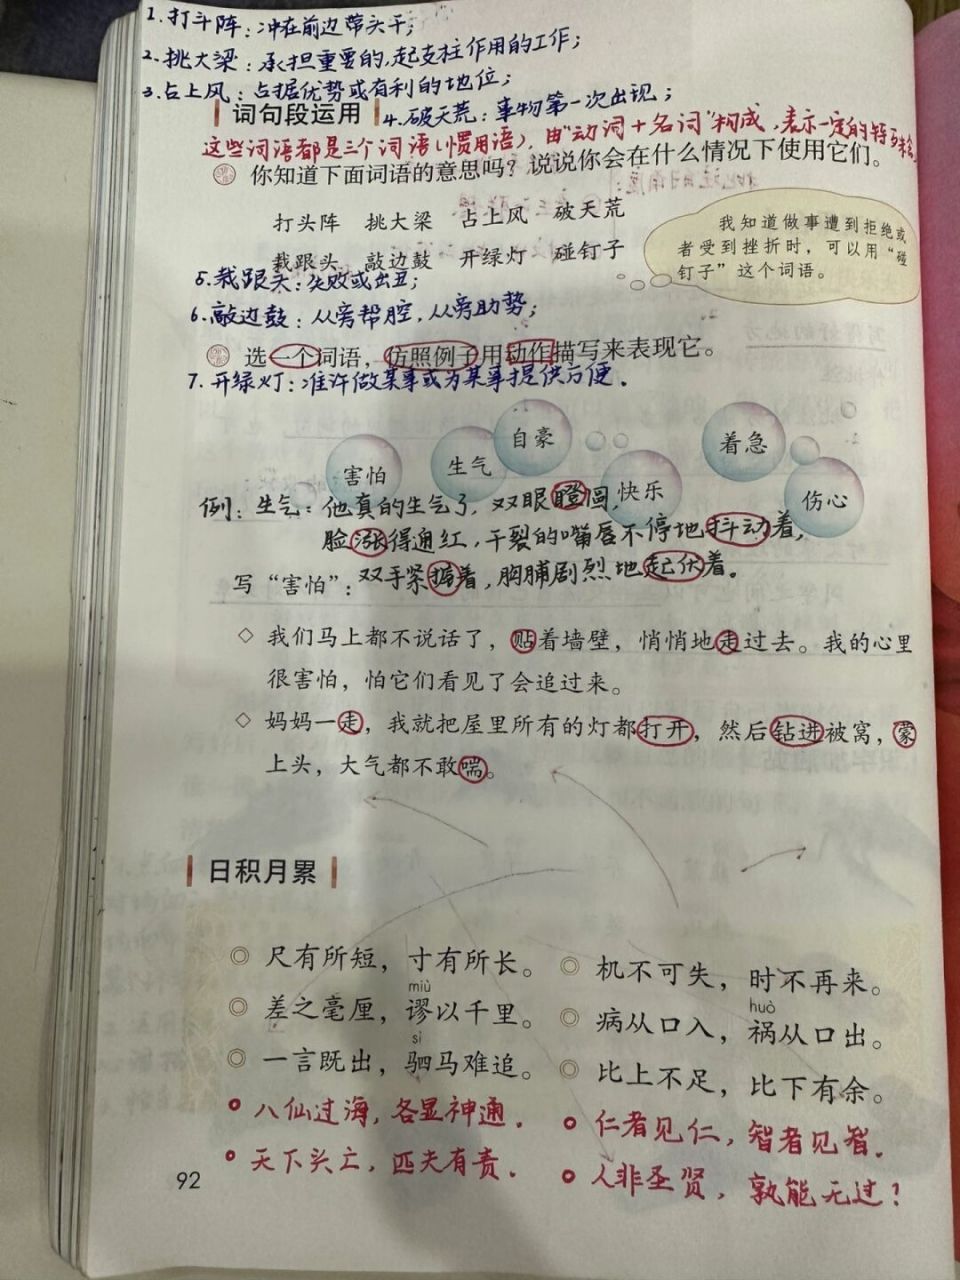 1.打斗阵：冲在前边带头干；
2.挑大梁：承担重要的，起支柱作用的工作；
3.占上风：占据优势或有利的地位；
词句段运用
4.破天荒：事物第一次出现；
这些词语都是三个词语（惯用语），由“动词＋名词”构成，表示一定的特
你知道下面词语的意思吗？说说你会在什么情况下使用它们。
打头阵 挑大梁 占上风 破天荒
栽跟头 敲边鼓 开绿灯 碰钉子
我知道做事遭到拒绝或
者受到挫折时，可以用“碰
钉子”这个词语。
5.栽跟头：失败或出丑；
6.敲边鼓：从旁帮腔，从旁助势；
选一个词语，仿照例子用动作描写来表现它。
7.开绿灯：准许做某事或为某事提供方便。
害怕 生气 自豪 快乐 着急 伤心
例：生气：他真的生气了，双眼瞪圆，
脸涨得通红，干裂的嘴唇不停地抖动着，
写“害怕”：双手紧握着，胸脯剧烈地起伏着。
◇ 我们马上都不说话了，贴着墙壁，悄悄地走过去。我的心里
很害怕，怕它们看见了会追过来。
◇ 妈妈一走，我就把屋里所有的灯都打开，然后钻进被窝，蒙
上头，大气都不敢喘。
日积月累
◎ 尺有所短，寸有所长。
miù
◎ 差之毫厘，谬以千里。
sì
◎ 一言既出，驷马难追。
八仙过海，各显神通。
天下兴亡，匹夫有责。
◎ 机不可失，时不再来。
huò
◎ 病从口入，祸从口出。
◎ 比上不足，比下有余。
仁者见仁，智者见智。
人非圣贤，孰能无过？
92